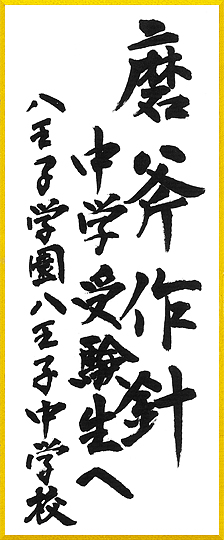 磨斧作針
中学受験生へ
八王子学園八王子中学校